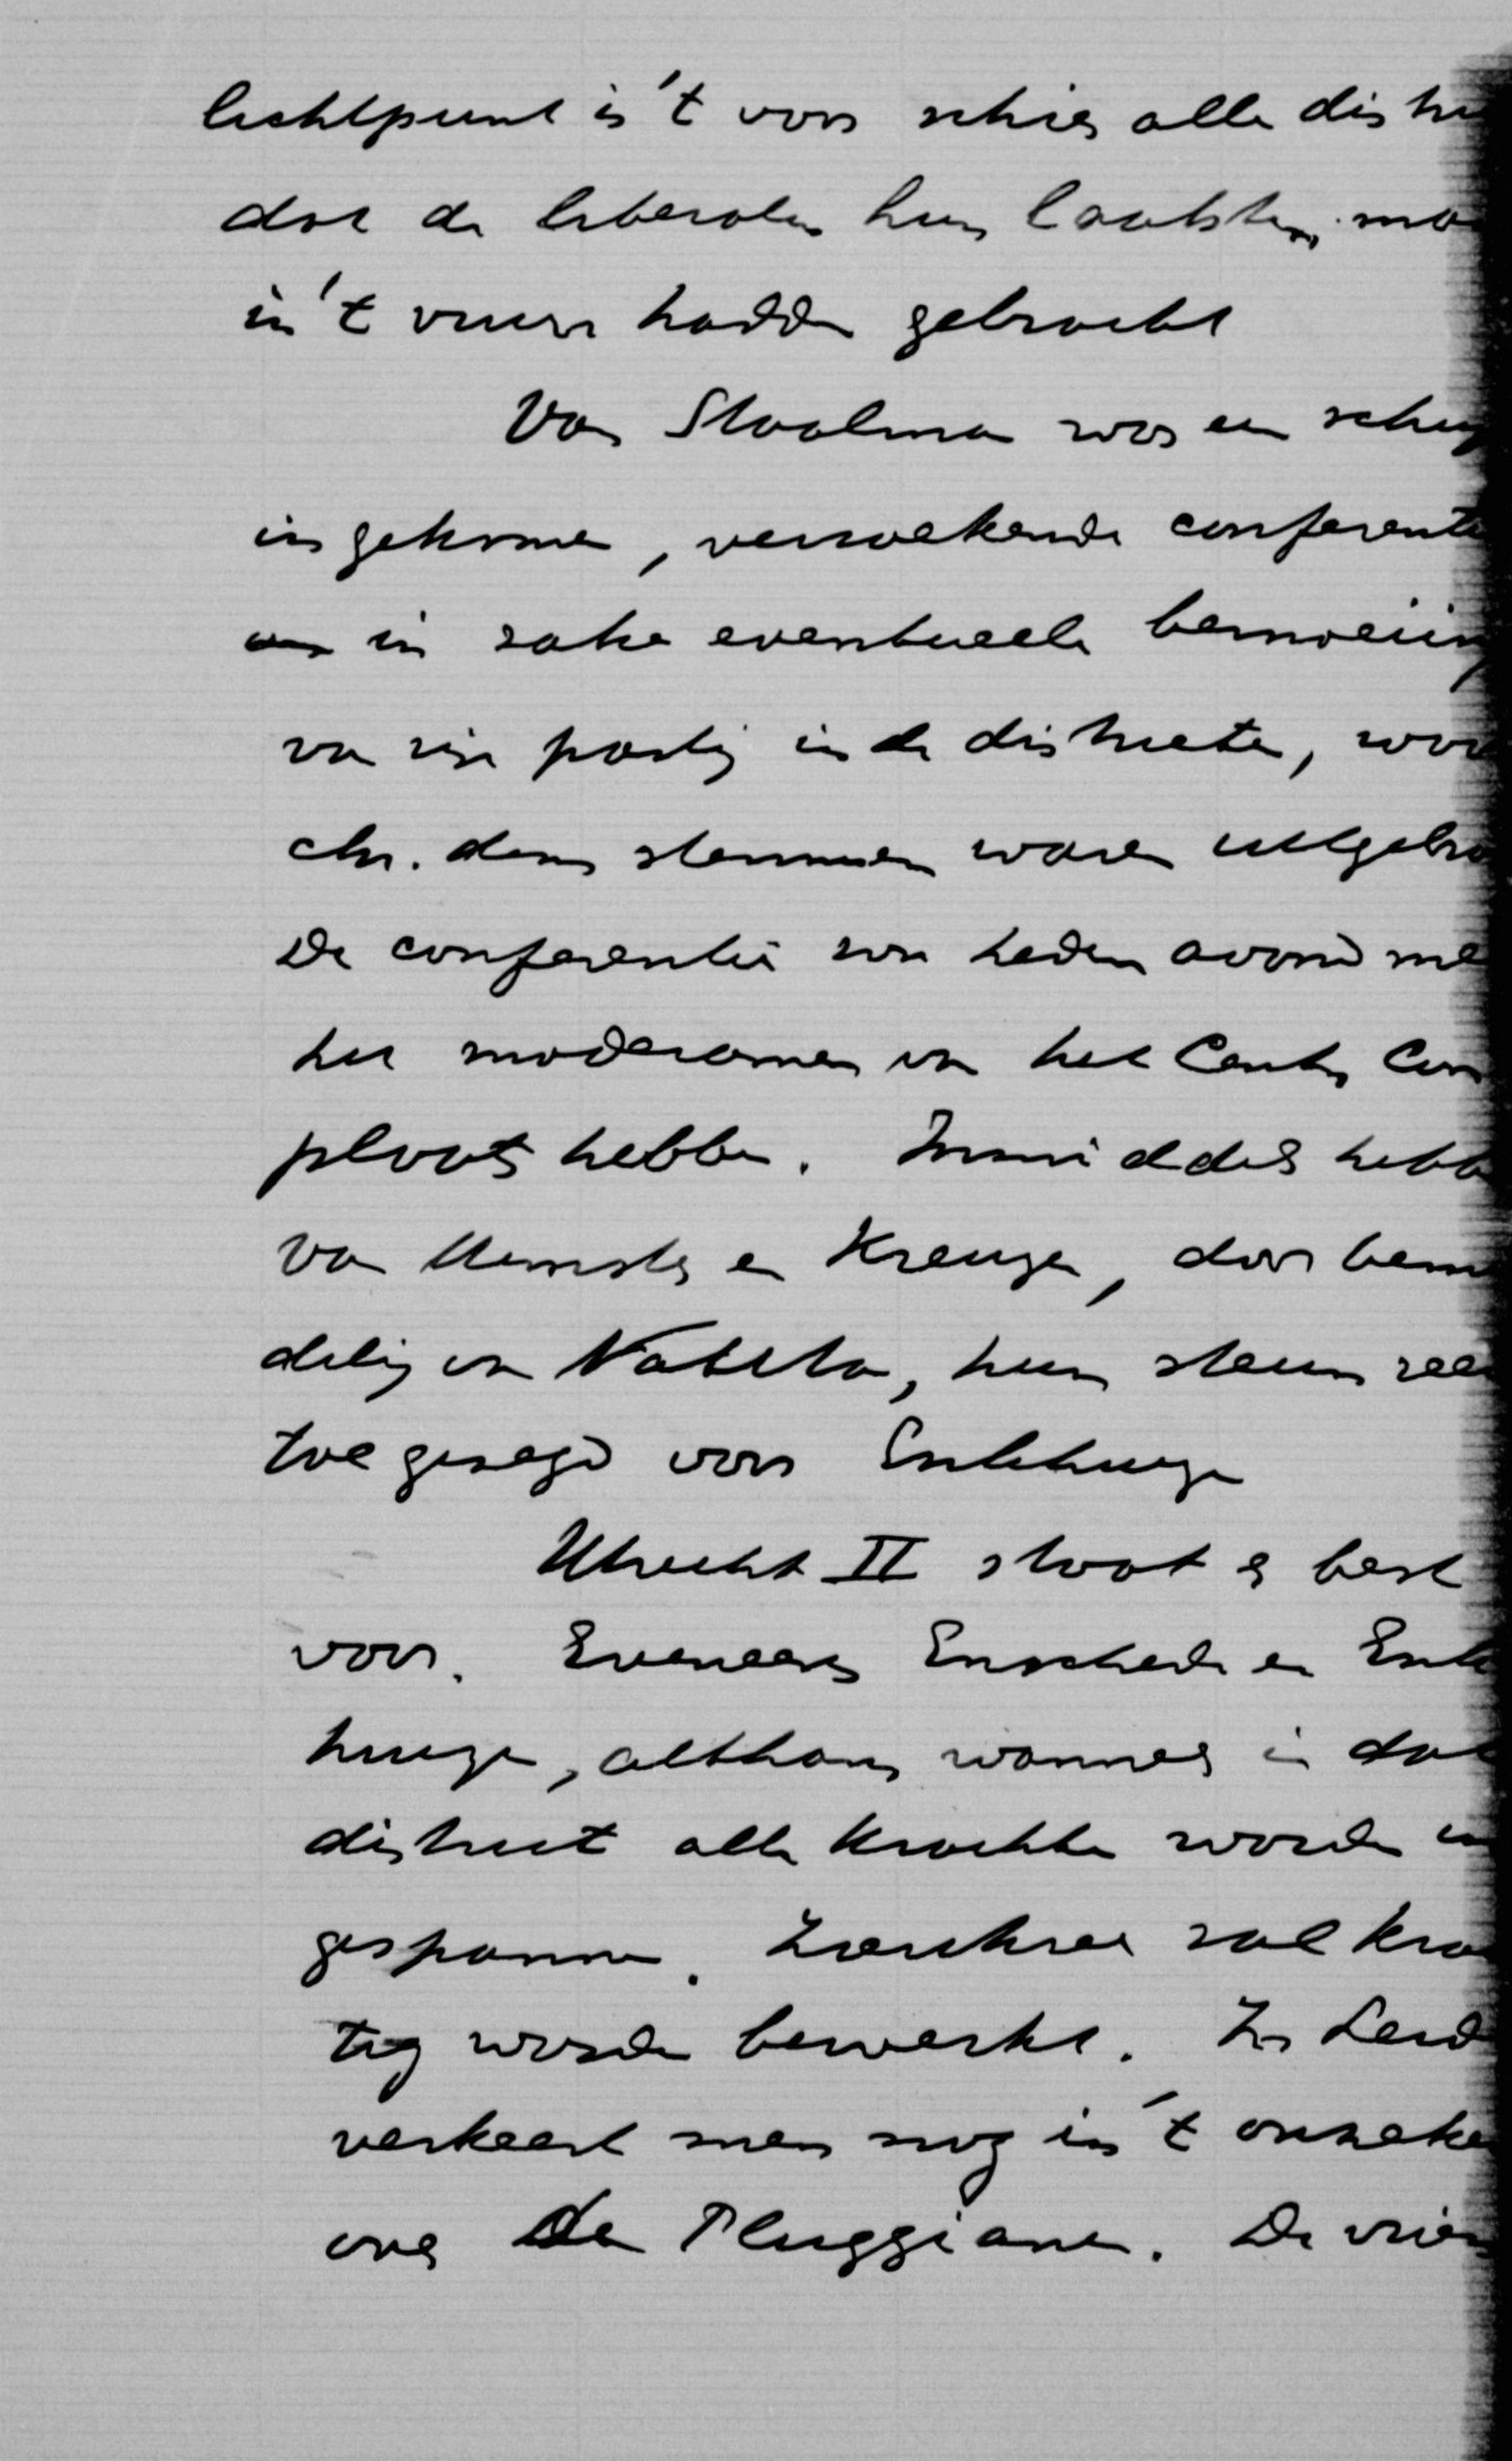 lichtpunt is 't voor schier alle distri
dat de liberalen hun laatsten ma
in 't vuur hadden gebracht
Van Staalman was een schrij
ingekomen, verzoekende conferentie
in zake eventueele bemoeiing
van zijn partij in de districten, waar
chr. dem stemmen waren uitgebra
De conferentie zou heden avond me
het moderamen van het Centr. Com
plaats hebben. Inmiddels hebb
van en Kreuger, door bemi
deling van Nabita, hun steun ree
toegezegd voor Enkhuizen
Utrecht II staat er best
voor. Eveneens Enschede en Enk
huizen, althans wanneer in dat
district alle krachten worden in
gespannen. Zierikzee zal krach
tig worden bewerkt. In Leid
verkeert men nog in 't onzeker
over de Pluggianen. De vrien